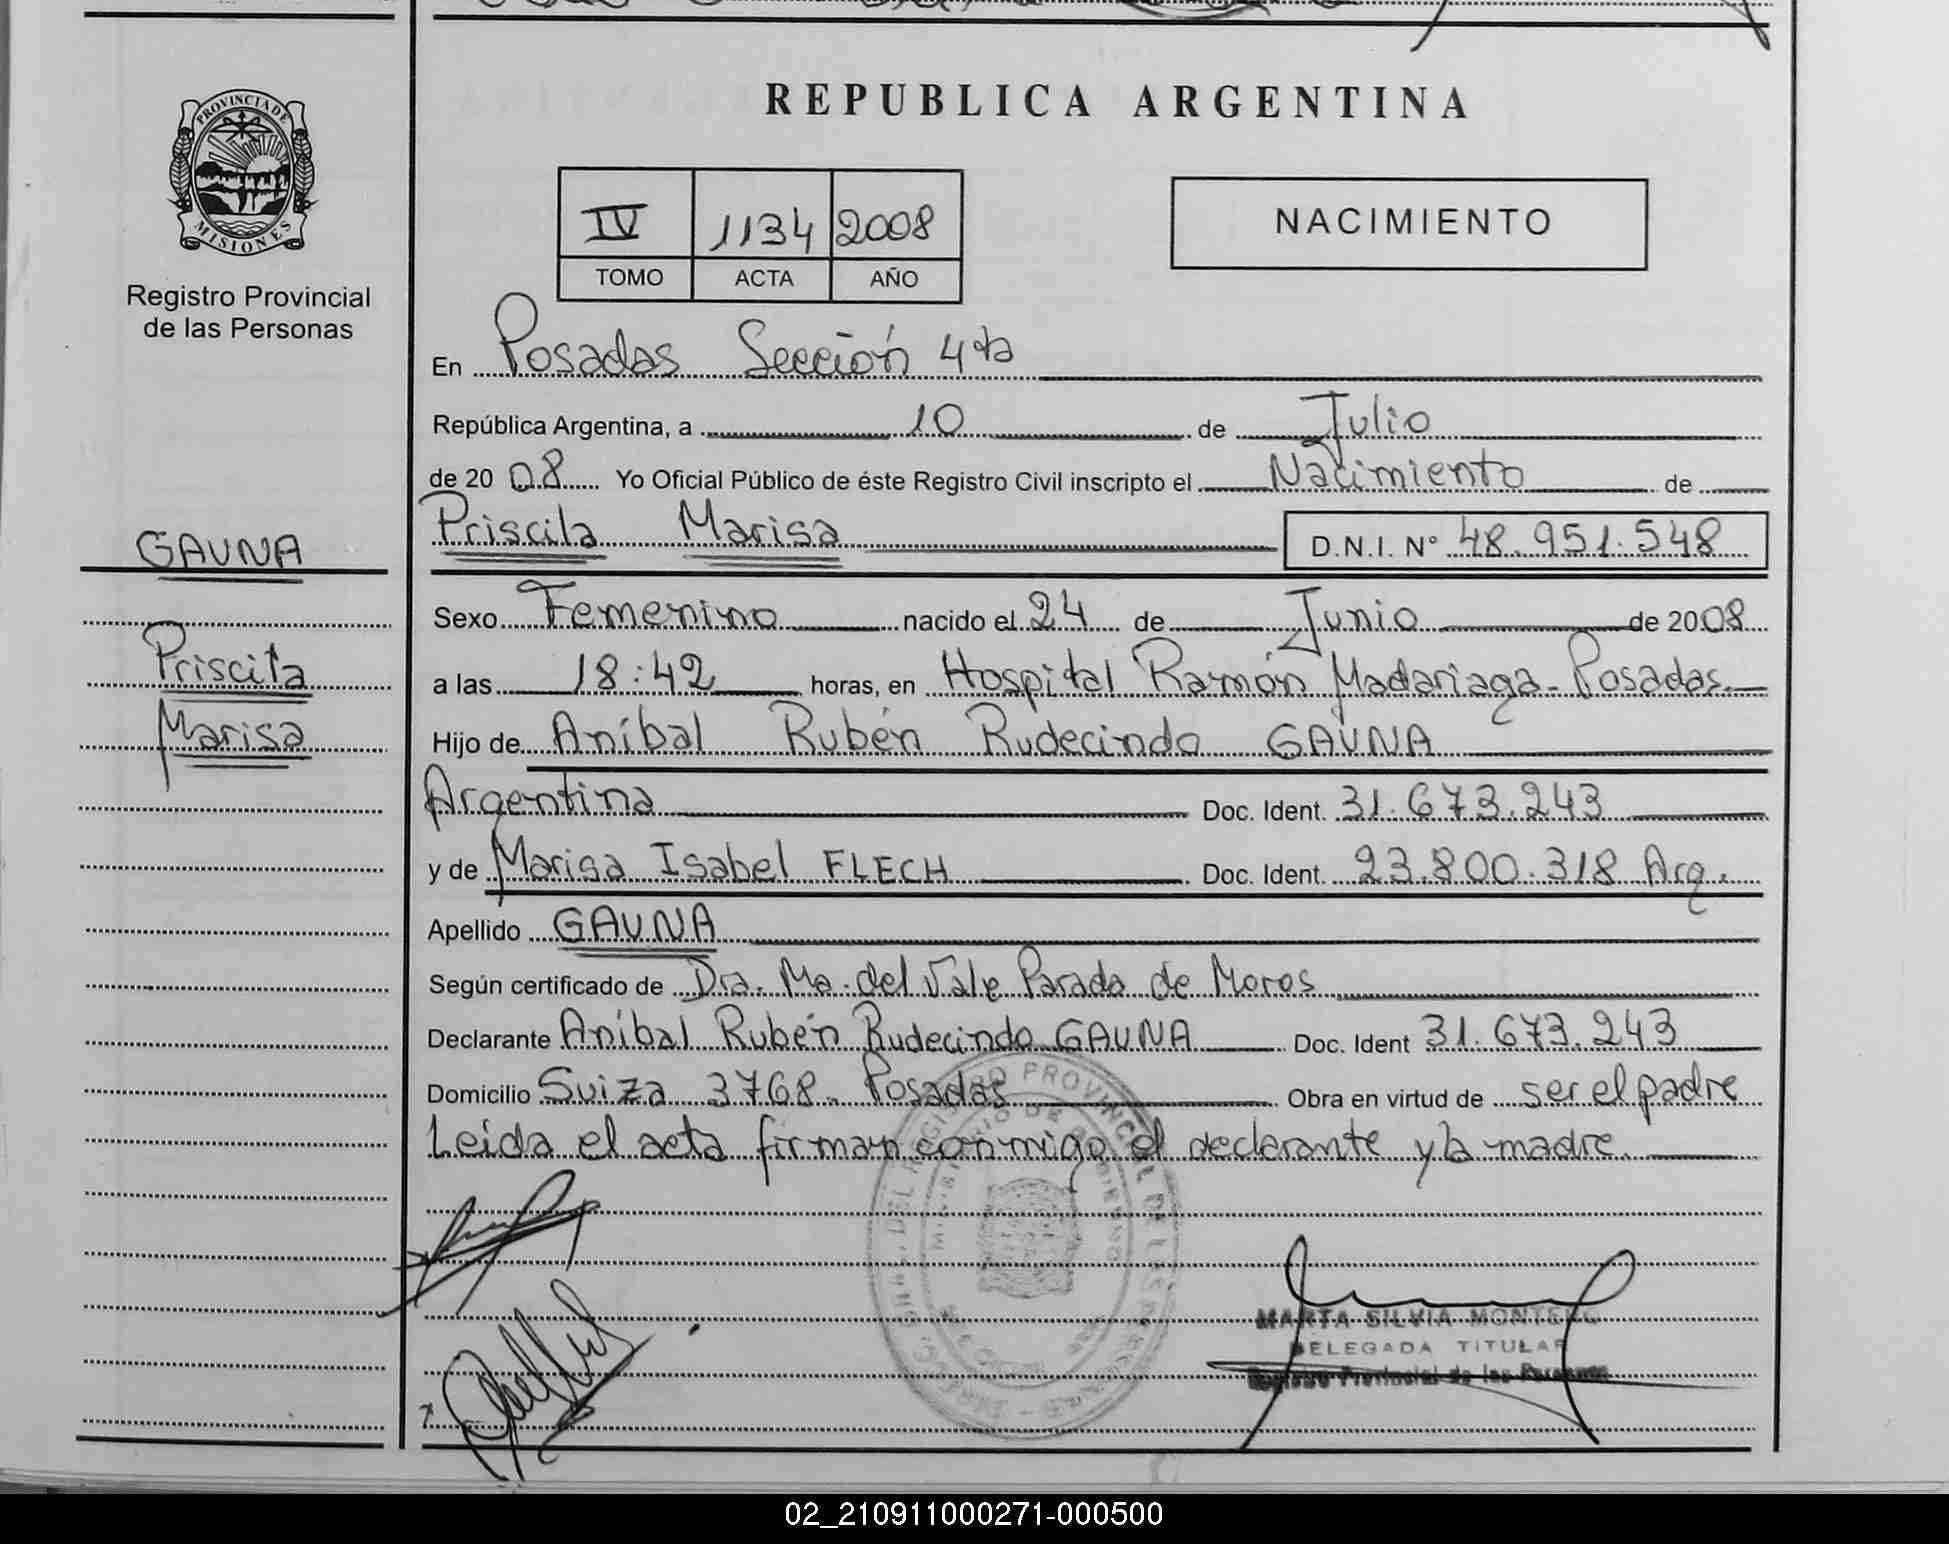 REPUBLICA ARGENTINA
PROVINCIA DE
MISIONES
Registro Provincial
de las Personas
IV 1134 2008
TOMO ACTA AÑO
NACIMIENTO
En Posadas Sección 4ta
República Argentina, a 10 de Julio
de 2008 Yo Oficial Público de éste Registro Civil inscripto el Nacimiento de
Priscila Marisa D.N.I. N° 48.951.548
GAUNA
Priscila
Marisa
Sexo Femenino nacido el 24 de Junio de 2008
a las 18:42 horas, en Hospital Ramón Madariaga - Posadas.
Hijo de Aníbal Rubén Rudecindo GAUNA
Argentina Doc. Ident. 31.673.243
y de Marisa Isabel FLECH Doc. Ident. 23.800.318 Arg.
Apellido GAUNA
Según certificado de Dra. Ma. del Vale Parada de Moros
Declarante Aníbal Rubén Rudecindo GAUNA Doc. Ident 31.673.243
Domicilio Suiza 3768. Posadas Obra en virtud de ser el padre
Leida el acta firman conmigo el declarante y la madre.
MARTA SILVIA
DELEGADA TITULAR
Registro Provincial de las Personas
02_210911000271-000500